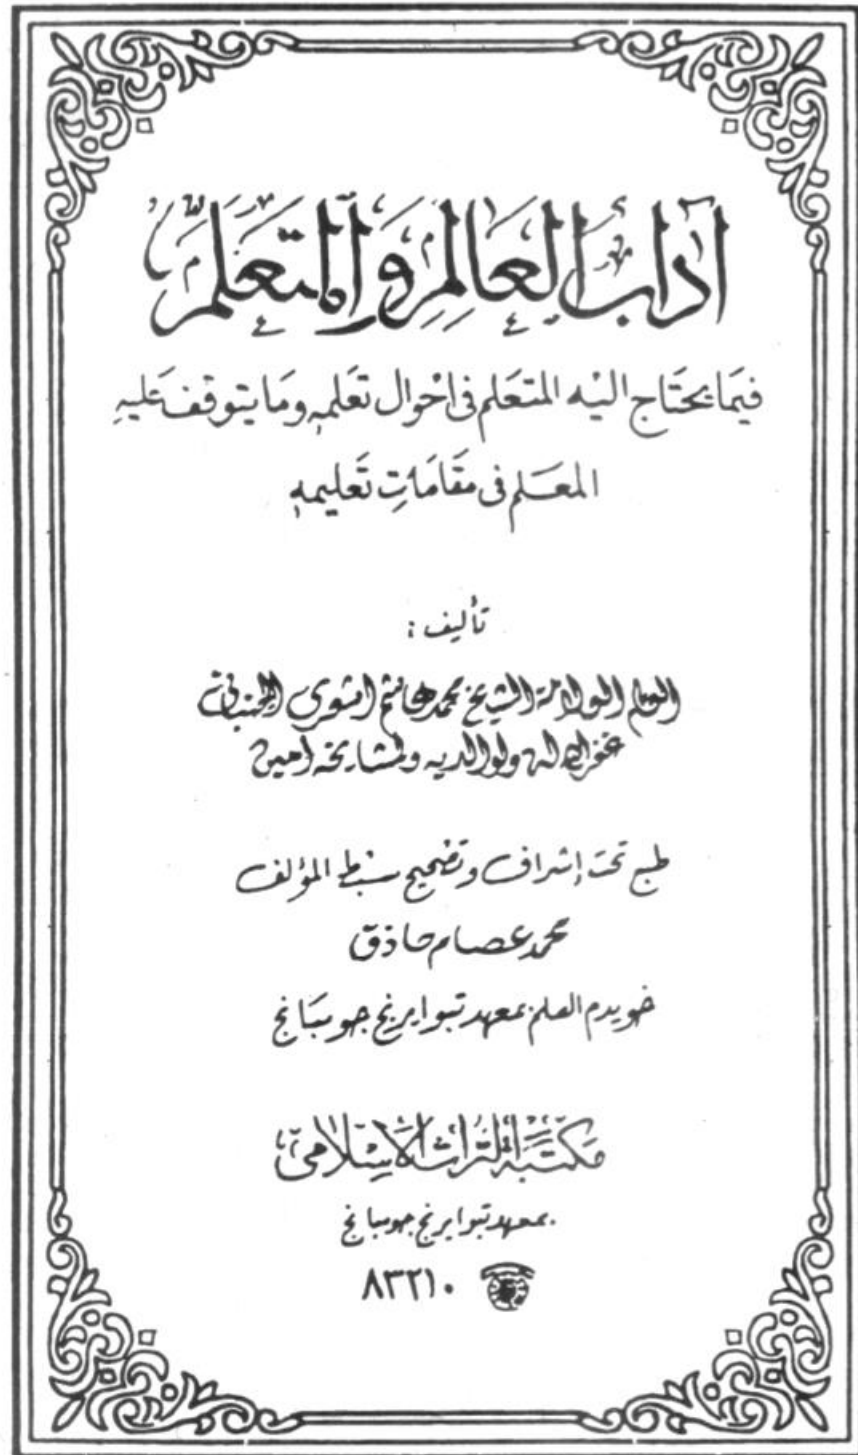 آدَابُ الْعَالِمِ وَالْمُتَعَلِّمِ
فيمَا يحتَاج اليْه المتعَلم فى احْوال تعَلمهِ ومَا يتوقف عَليهِ
المعَلم فى مقَامَاتِ تعَليمهِ
تأليف :
العالم العلامة الشيخ محمد هاشم اشعرى الجنبانى
غفر الله له ولوالديه ولمشايخه آمين
طبع تحت إشراف وتصحيح سبط المؤلف
محمد عصام حاذق
خويدم العلم بمعهد تبوايرنج جومبَانج
مَكتَبَة التُّرَاث الْإِسْلَامِى
بمعهد تبوايرنج جومبانج
٨٣٢١٠